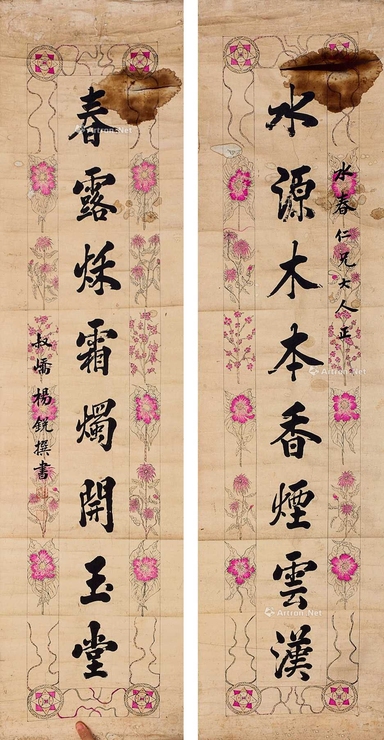 水春仁兄大人正
水源木本香煙雲漢
春露秌霜燭開玉堂
叔嶠楊銳撰書
Artron.Net
Artron.Net
Artron.Net
Artron.Net